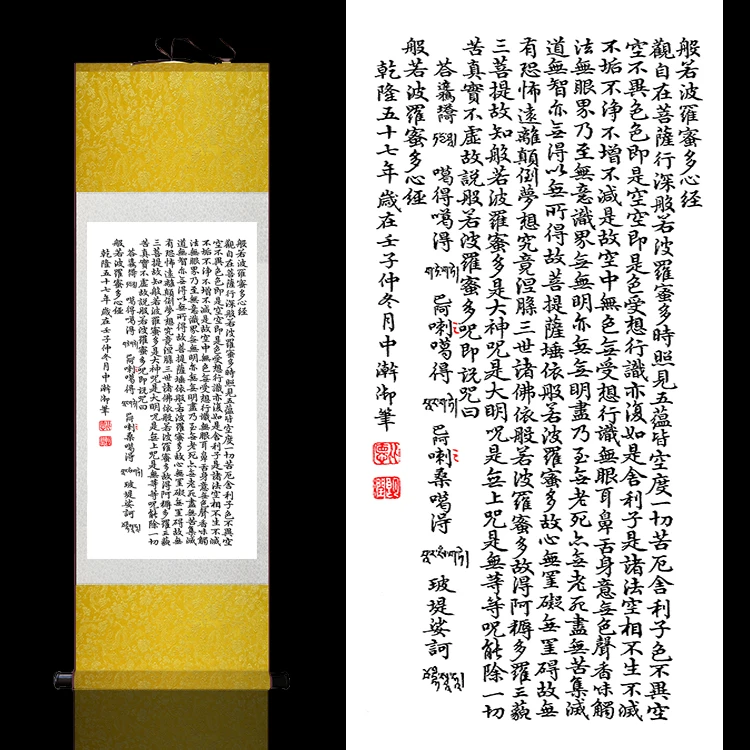 般若波羅蜜多心経
觀自在菩薩行深般若波羅蜜多時照見五蘊皆空度一切苦厄舍利子色不異空
空不異色色即是空空即是色受想行識亦復如是舍利子是諸法空相不生不滅
不垢不净不增不減是故空中無色無受想行識無眼耳鼻舌身意無色聲香味觸
法無眼界乃至無意識界無無明亦無無明盡乃至無老死亦無老死盡無苦集滅
道無智亦無得以無所得故菩提薩埵依般若波羅蜜多故心無罣礙無罣碍故無
有恐怖遠離顛倒夢想究竟涅槃三世諸佛依般若波羅蜜多故得阿耨多羅三藐
三菩提故知般若波羅蜜多是大神咒是大明咒是無上咒是無等等呪能除一切
苦真實不虛故説般若波羅蜜多呪即説呪曰
噶得噶得 喇噶得 喇桑噶得 玻堤娑訶
般若波羅蜜多心經
乾隆五十七年歲在壬子仲冬月中澣御筆